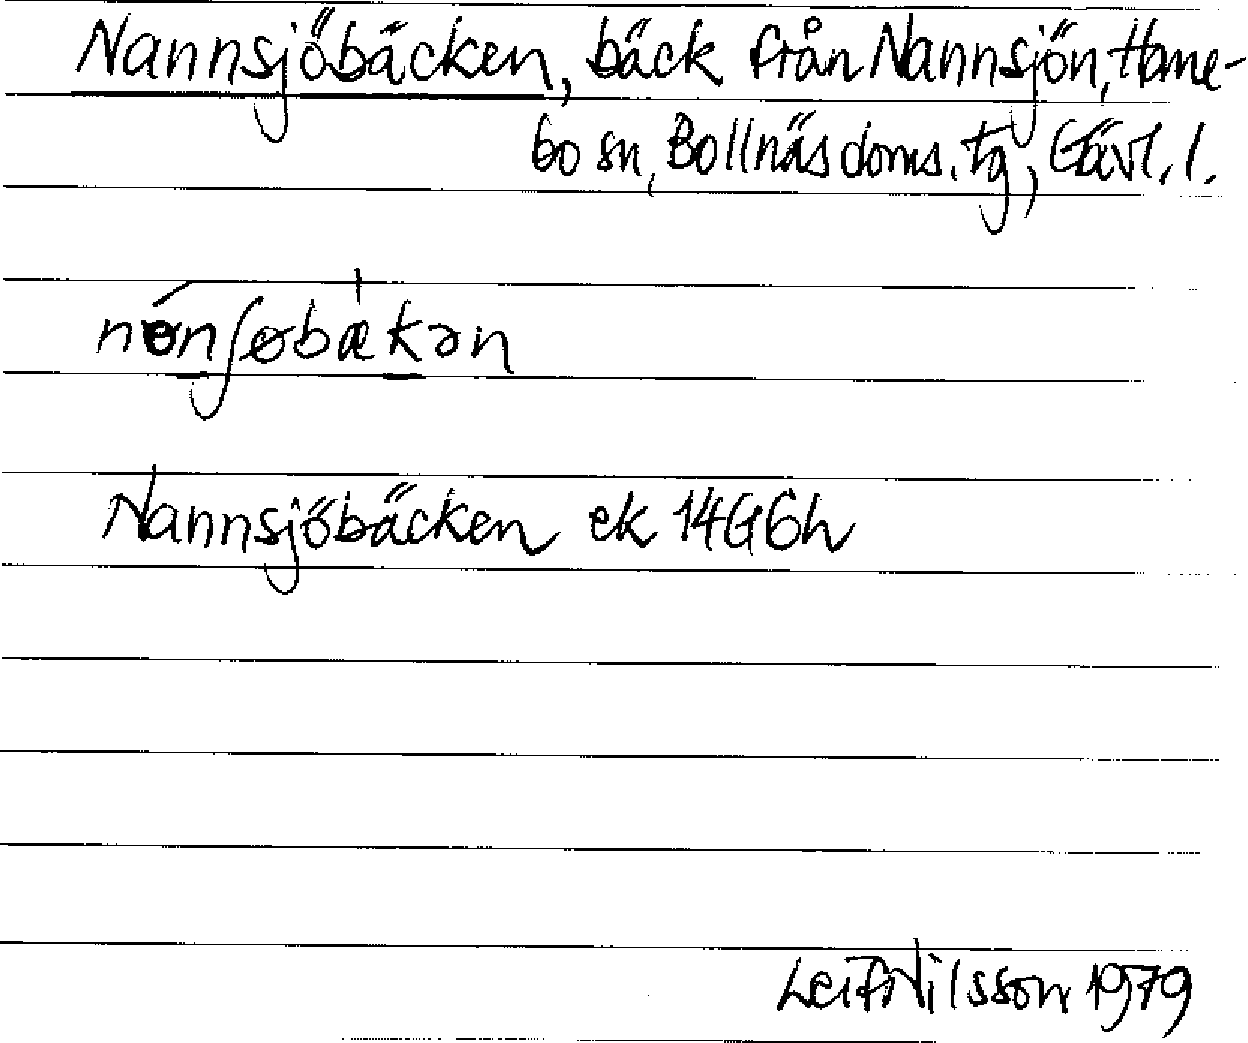 Nannsjöbäcken, bäck från Nannsjön, Hame-
bo sn, Bollnäs doms. tg, Gävl. l.
nɵ́nʃøbækən
Nannsjöbäcken ek 14G6h
Leif Nilsson 1979